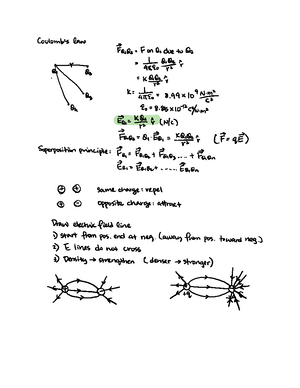 Coulomb's law
F⃗Q₁Q₂ = F on Q₁ due to Q₂
= 1/4πε₀ Q₁Q₂/r² r̂
= K Q₁Q₂/r² r̂
K = 1/4πε₀ = 8.99 × 10⁹ N·m²/C²
ε₀ = 8.85 × 10⁻¹² C²/N·m²
= KQ₂/r² r̂ (N/C)
= KQ₁Q₂/r² r̂ (F⃗ = qE⃗)
Superposition principle:
+ + same charge: repel
+ - opposite charge: attract
Draw electric field line
1) start from pos. end at neg. (away from pos. toward neg.)
2) E lines do not cross
3) Density → strengthen (denser → stronger)
+q